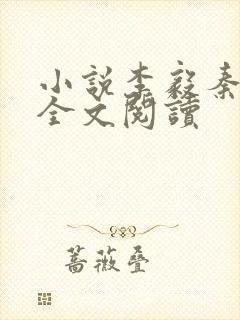 小說李毅秦
全文閱讀
薔薇疊